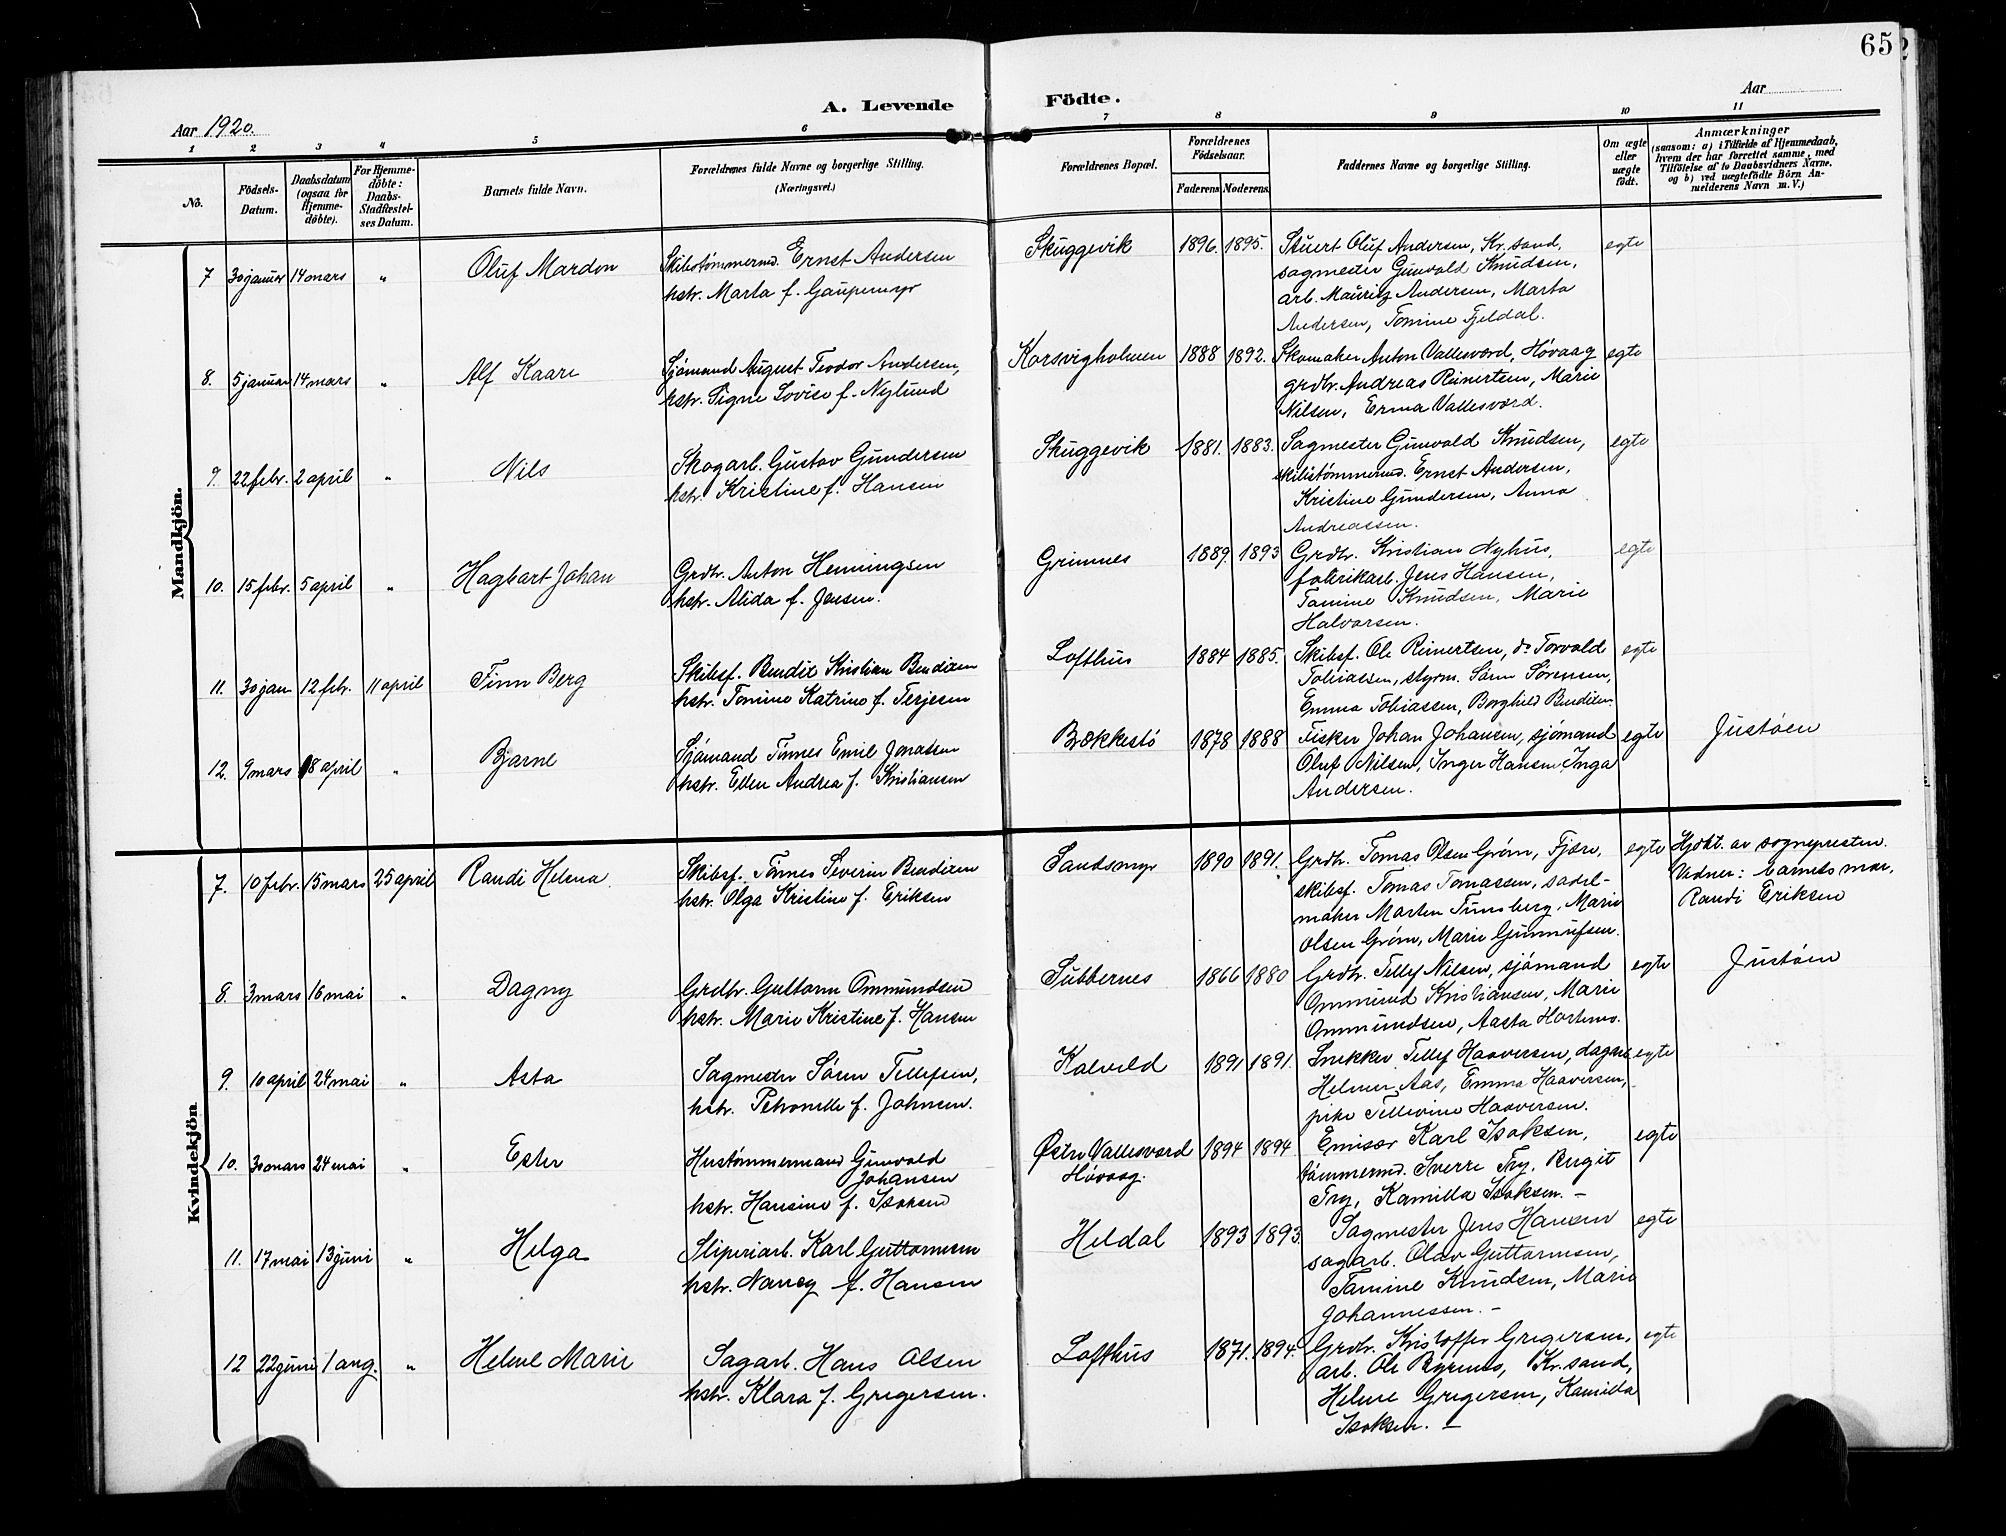 65
A. Levende Födte.
Aar 1920.
Aar
1 2 3 4 5 6 7 8 9 10 11
No.
Födsels-
Datum.
Daabsdatum
(ogsaa for
Hjemme-
döbte).
For Hjemme-
döbte:
Daabs-
Stadfæstel-
ses Datum.
Barnets fulde Navn.
Forældrenes fulde Navne og borgerlige Stilling.
(Næringsvei.)
Forældrenes Bopæl.
Forældrenes
Födselsaar.
Faderens. Moderens.
Faddernes Navne og borgerlige Stilling.
Om ægte
eller
uægte
födt.
Anmærkninger
(saasom: a) i Tilfælde af Hjemmedaab,
hvem der har forrettet samme, med
Tilföielse af to Daabsvidners Navne,
og b) ved uægtefödte Börn An-
melderens Navn m. V.)
Mandkjön.
7 30 januar 14 mars " Oluf Mardon
Skibstømmermd. Ernst Andersen
hstr. Marta f. Gaupemyr
Skuggevik 1896. 1895.
Stuert Oluf Andersen, Kr.sand,
sagmester Gunvald Knudsen,
arb. Mauritz Andersen, Marta
Andersen, Tomine Fjeldal.
egte
8. 5 januar 14 mars " Alf Kaare
Sjømand August Teodor Andersen,
hstr. Signe Lovise f. Nylund
Korsvigholmen 1888 1892.
Skomaker Anton Vallesværd, Høvaag
grdbr. Andreas Reinertsen, Marie
Nilsen, Erma Vallesværd.
egte
9. 22 febr. 2 april " Nils
Skogarb. Gustav Gundersen
hstr. Kristine f. Hansen
Skuggevik 1881. 1883.
Sagmester Gunvald Knudsen,
skibstømmermd. Ernst Andersen,
Kristine Gundersen, Anna
Andreassen.
egte
10. 15 febr. 5 april " Hagbart Johan
Grdbr. Anton Henningsen
hstr. Alida f. Jensen.
Grimnes 1889. 1893
Grdbr. Kristian Nyhus,
fabrikarb. Jens Hansen,
Tomine Knudsen, Marie
Halvorsen.
egte
11. 30 jan 12 febr. 11 april Finn Berg
Skibsf. Bendix Kristian Bendixen
hstr. Tomine Katrine f. Terjesen
Lofthus 1884 1885.
Skibsf. Ole Reinertsen, do Torvald
Tobiassen, styrm. Sørn Sørensen,
Emma Tobiassen, Borghild Bendixen.
egte
12. 9 mars 8 april " Bjarne
Sjømand Tønnes Emil Jonassen
hstr. Ellen Andrea f. Kristiansen
Brekkestø 1878 1888
Fisker Johan Johansen, sjømand
Oluf Nilsen, Inger Hansen, Inga
Andersen.
egte Justøen
Kvindekjön
7. 10 febr. 15 mars 25 april Randi Helena
Skibsf. Tønnes Severin Bendixen
hstr. Olga Kristine f. Eriksen
Sandsmyr 1890 1891.
Grdbr. Tomas Olsen Grøm, Fjære,
skibsf. Tomas Tomassen, sadel-
maker Morten Tunsberg, Marie
Olsen Grøm, Marie Gunnufsen.
egte
Hjdbt. av sognepresten.
Vidner: barnets mor,
Randi Eriksen
8. 3 mars 16 mai " Dagny
Grdbr. Guttorm Ommundsen
hstr. Marie Kristine f. Hansen
Tubbernes 1866 1880
Grdbr. Tellef Nilsen, sjømand
Ommund Kristiansen, Marie
Ommundsen, Aasta
egte Justøen
9. 10 april 24 mai " Asta
Sagmester Søren Tellefsen,
hstr. Petronelle f. Johnsen.
Kalveld 1891 1891.
Snekker Tellef Haaversen, dagarb.
Helmer Aas, Emma Haaversen,
pike Tellevine Haaversen.
egte
10. 30 mars 24 mai " Ester
Hustømmermand Gunvald
Johansen
hstr. Hansine f. Isaksen
Østre Vallesværd
Høvaag.
1894 1894
Emisær Karl Isaksen,
tømmermd. Sverre Try, Birgit
Try, Kamilla Isaksen. –
egte
11. 17 mai 13 juni " Helga
Sliperiarb. Karl Guttormsen
hstr. Nancy f. Hansen
Heldal 1893 1893.
Sagmester Jens Hansen
sagarb. Olav Guttormsen,
Tomine Knudsen, Marie
Johannessen. –
egte
12 22 juni 1 aug. " Helene Marie
Sagarb. Hans Olsen
hstr. Klara f. Gregersen.
Lofthus 1871. 1894.
Grdbr. Kristoffer Gregersen,
arb. Ole Byrenes, Kr.sand,
Helene Gregersen, Kamilla
Isaksen. –
egte